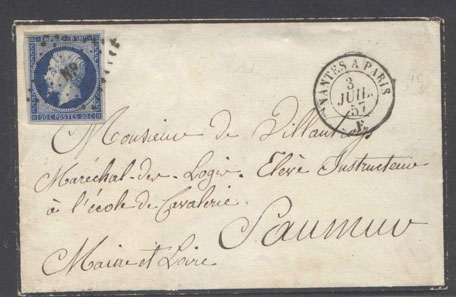 NP
20C POSTES 20C
NANTES A PARIS
3
JUIL.
57
E
Monsieur de Villautroys
Maréchal-des-Logis Elève Instructeur
à l'école de Cavalerie.
Saumur
Maine et Loire